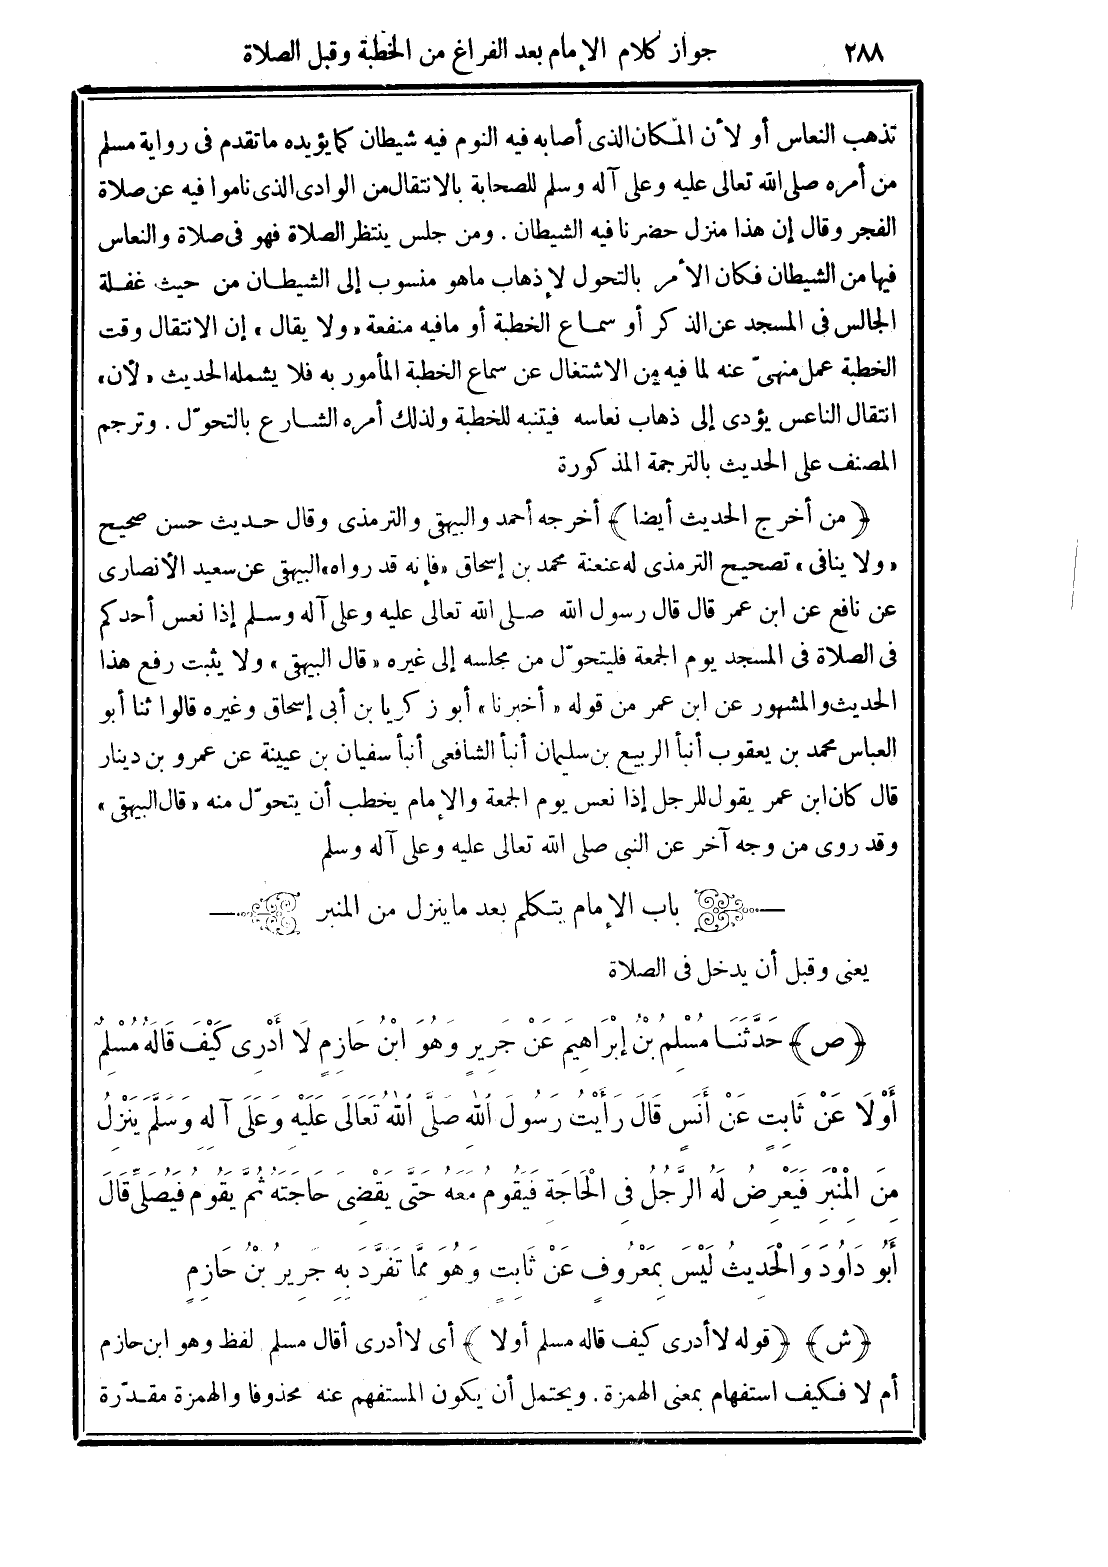 ٢٨٨ جواز كلام الإمام بعد الفراغ من الخطبة وقبل الصلاة
تذهب النعاس أو لأن المكان الذى أصابه فيه النوم فيه شيطان كما يؤيده ما تقدم فى رواية مسلم
من أمره صلى الله تعالى عليه وعلى آله وسلم للصحابة بالانتقال من الوادى الذى ناموا فيه عن صلاة
الفجر وقال إن هذا منزل حضرنا فيه الشيطان . ومن جلس ينتظر الصلاة فهو فى صلاة والنعاس
فيها من الشيطان فكان الأمر بالتحول لإذهاب ما هو منسوب إلى الشيطان من حيث غفلة
الجالس فى المسجد عن الذكر أو سماع الخطبة أو ما فيه منفعة «ولا يقال» إن الانتقال وقت
الخطبة عمل منهىّ عنه لما فيه من الاشتغال عن سماع الخطبة المأمور به فلا يشمله الحديث «لأن»
انتقال الناعس يؤدى إلى ذهاب نعاسه فيتنبه للخطبة ولذلك أمره الشارع بالتحوّل . وترجم
المصنف على الحديث بالترجمة المذكورة
﴿ من أخرج الحديث أيضا ﴾ أخرجه أحمد والبيهقى والترمذى وقال حديث حسن صحيح
«ولا ينافى» تصحيح الترمذى له عنعنة محمد بن إسحاق «فإنه قد رواه» البيهقى عن سعيد الأنصارى
عن نافع عن ابن عمر قال قال رسول الله صلى الله تعالى عليه وعلى آله وسلم إذا نعس أحدكم
فى الصلاة فى المسجد يوم الجمعة فليتحوّل من مجلسه إلى غيره «قال البيهقى» ولا يثبت رفع هذا
الحديث والمشهور عن ابن عمر من قوله «أخبرنا» أبو زكريا بن أبى إسحاق وغيره قالوا ثنا أبو
العباس محمد بن يعقوب أنبأ الربيع بن سليمان أنبأ الشافعى أنبأ سفيان بن عيينة عن عمرو بن دينار
قال كان ابن عمر يقول للرجل إذا نعس يوم الجمعة والإمام يخطب أن يتحوّل منه «قال البيهقى»
وقد روى من وجه آخر عن النبى صلى الله تعالى عليه وعلى آله وسلم
باب الإمام يتكلم بعد ما ينزل من المنبر
يعنى وقبل أن يدخل فى الصلاة
﴿ص﴾ حَدَّثَنَا مُسْلِمُ بْنُ إِبْرَاهِيمَ عَنْ جَرِيرٍ وَهُوَ ابْنُ حَازِمٍ لَا أَدْرِى كَيْفَ قَالَهُ مُسْلِمٌ
أَوْلَا عَنْ ثَابِتٍ عَنْ أَنَسٍ قَالَ رَأَيْتُ رَسُولَ اللهِ صَلَّى اللهُ تَعَالَى عَلَيْهِ وَعَلَى آلِهِ وَسَلَّمَ يَنْزِلُ
مِنَ الْمِنْبَرِ فَيَعْرِضُ لَهُ الرَّجُلُ فِى الْحَاجَةِ فَيَقُومُ مَعَهُ حَتَّى يَقْضِىَ حَاجَتَهُ ثُمَّ يَقُومُ فَيُصَلِّى قَالَ
أَبُو دَاوُدَ وَالْحَدِيثُ لَيْسَ بِمَعْرُوفٍ عَنْ ثَابِتٍ وَهُوَ مِمَّا تَفَرَّدَ بِهِ جَرِيرُ بْنُ حَازِمٍ
﴿ش﴾ ﴿قوله لا أدرى كيف قاله مسلم أولا﴾ أى لا أدرى أقال مسلم لفظ وهو ابن حازم
أم لا فكيف استفهام بمعنى الهمزة . ويحتمل أن يكون المستفهم عنه محذوفا والهمزة مقدّرة